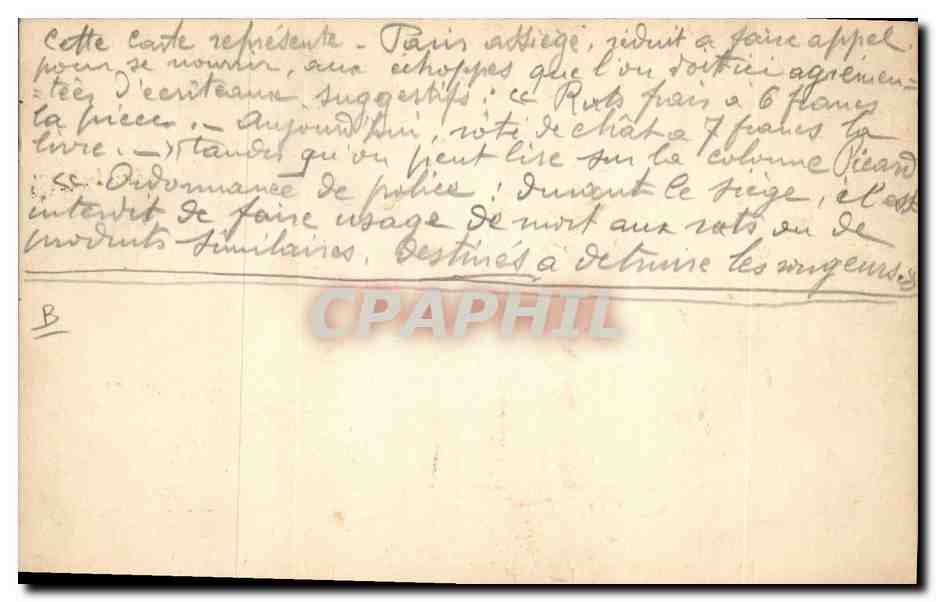 Cette carte représente - Paris assiégé, réduit à faire appel,
pour se nourrir, aux échoppes que l'on voit ici agrémen-
-tées d'écriteaux suggestifs : « Rats frais à 6 francs
la pièce. - Aujourd'hui, rôti de chat à 7 francs la
livre. - » tandis qu'on peut lire sur la colonne Picard
: « Ordonnance de police : durant le siège, il est
interdit de faire usage de mort aux rats ou de
produits similaires, destinés à détruire les rongeurs. »
B
CPAPHIL